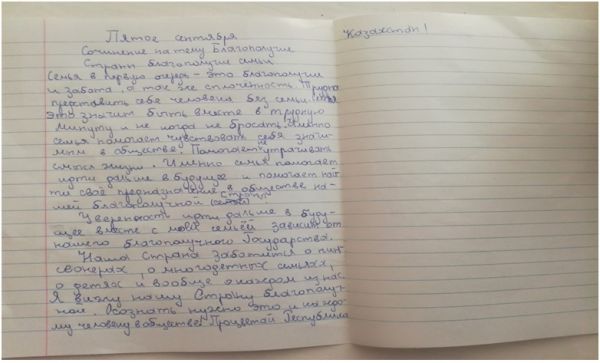 Пятое сентября
Сочинение на тему Благополучие
Страны благополучие семьи.
Семья в первую очередь - это благополучие
и забота, а так же сплоченность. Трудно
представить себе человека без семьи. Семья
это значит быть вместе в трудную
минуту и не когда не бросать. Именно
семья помогает чувствовать себя значи-
мым в обществе. Помогает не утрачивать
смысл жизни. Именно семья помогает
идти дальше в будущее и помогает най-
ти своё предназначение в обществе на-
шей благополучной Страны
Уверенность идти дальше в буду-
щее вместе с моей семьёй зависит от
нашего благополучного Государства.
Наша Страна заботится о пен-
сионерах, о многодетных семьях,
о детях и вообще о каждом из нас.
Я вижу нашу Страну благополуч-
ной. Осознать нужно это и каждо-
му человеку в обществе. Процветай Республика
Казахстан!